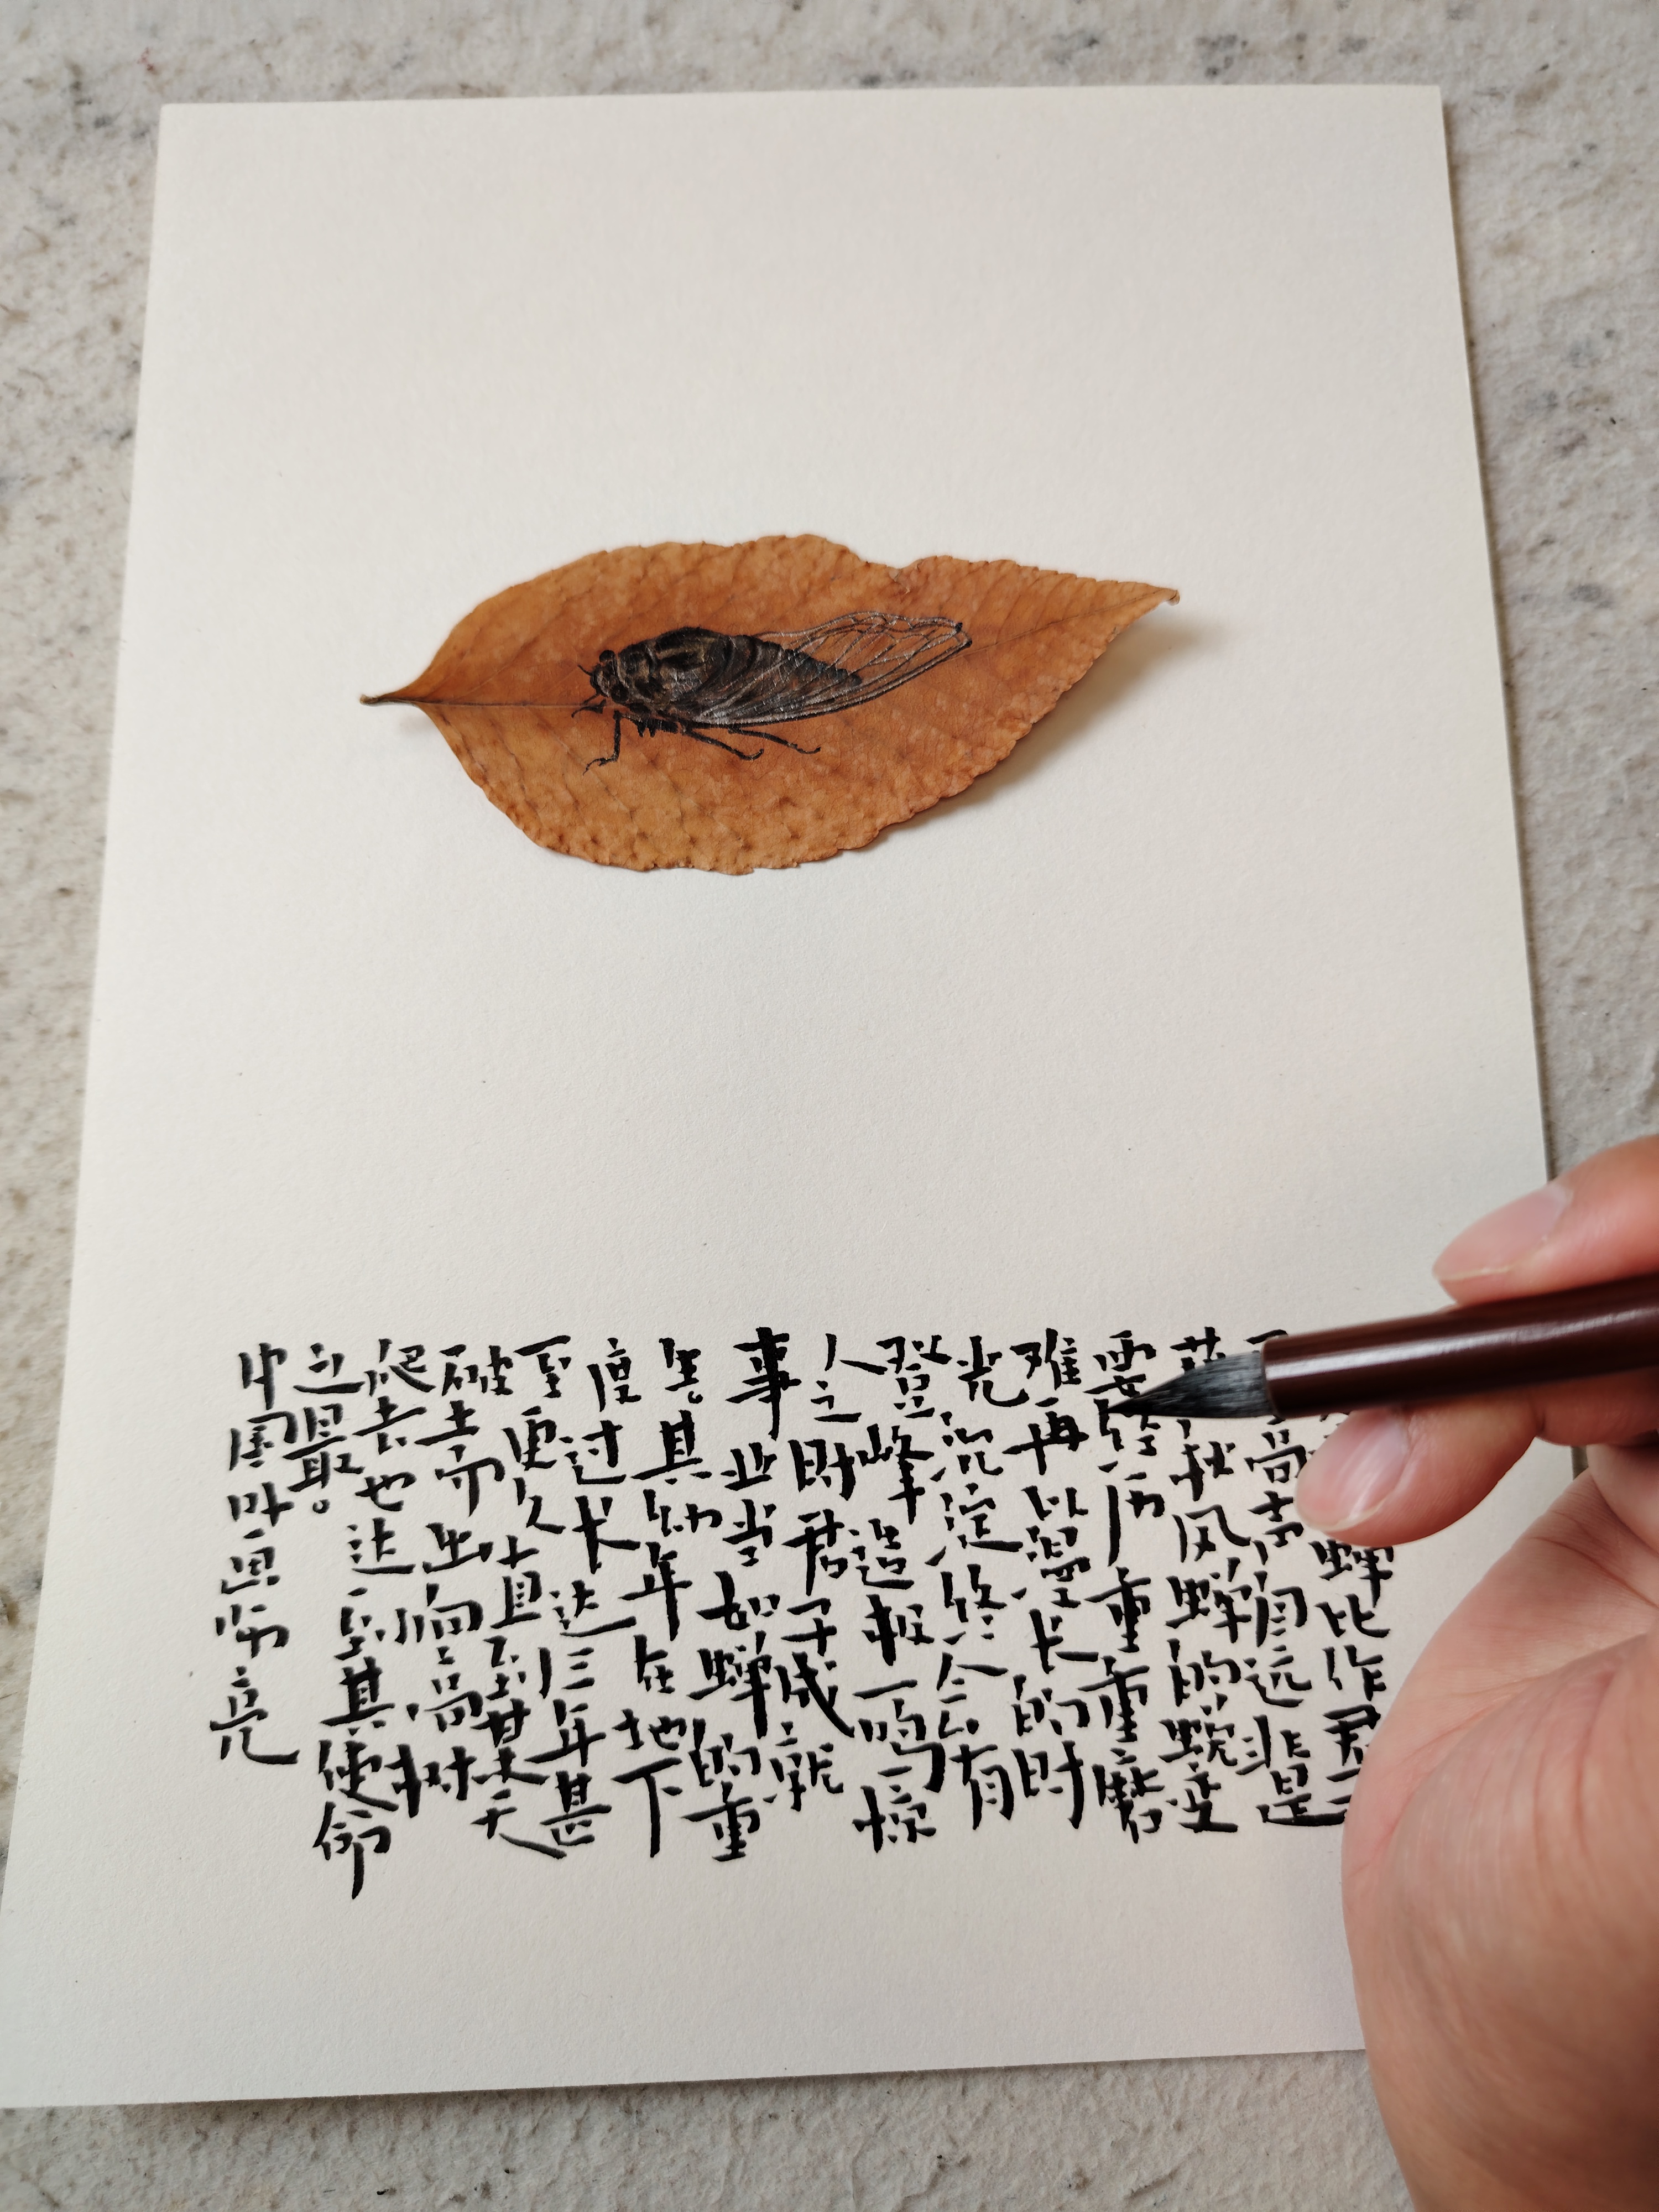 蝉比作君子
高声闻远非是
藉秋风蝉的蜕变
需经历重重磨
难再以漫长的时
光沉淀终会有
登峰造极一鸣惊
人之时君子成就
事业当如蝉的重
生。其幼年在地下
度过长达三年甚
至更久直至某天
破土而出向高树
爬去也达到其使命
之最。
中国叶画亮